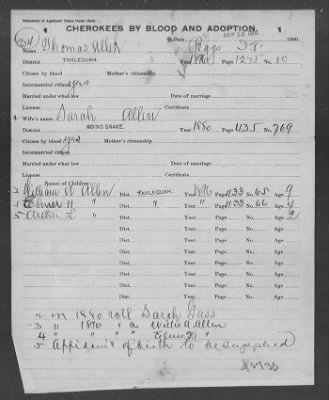 Statement of Applicant Taken Under Oath.
CHEROKEES BY BLOOD AND ADOPTION.
Date SEP 12 1900 1900.
Name Thomas Allen P.O. Peggs I.T.
District TAHLEQUAH Year 1896 Page 1275 No. 10
Citizen by blood Mother's citizenship
Intermarried citizen yes
Married under what law Date of marriage
License Certificate
Wife's name Sarah Allen
District GOING SNAKE. Year 1880 Page 435 No. 769
Citizen by blood yes Mother's citizenship
Intermarried citizen
Married under what law Date of marriage
License Certificate
Names of Children:
William A Allen Dist. TAHLEQUAH. Year 1896 Page 1133 No. 65 Age 9
Elmer H " Dist. " Year " Page 1133 No. 66 Age 4
5 L. " Dist. Year Page No. Age 2
Dist. Year Page No. Age
Dist. Year Page No. Age
Dist. Year Page No. Age
Dist. Year Page No. Age
Dist. Year Page No. Age
Dist. Year Page No. Age
2 on 1880 roll Sarah Gass
3 " 1896 " as Willie A Allen
4 " " "
5 Affidavit of birth to be supplied